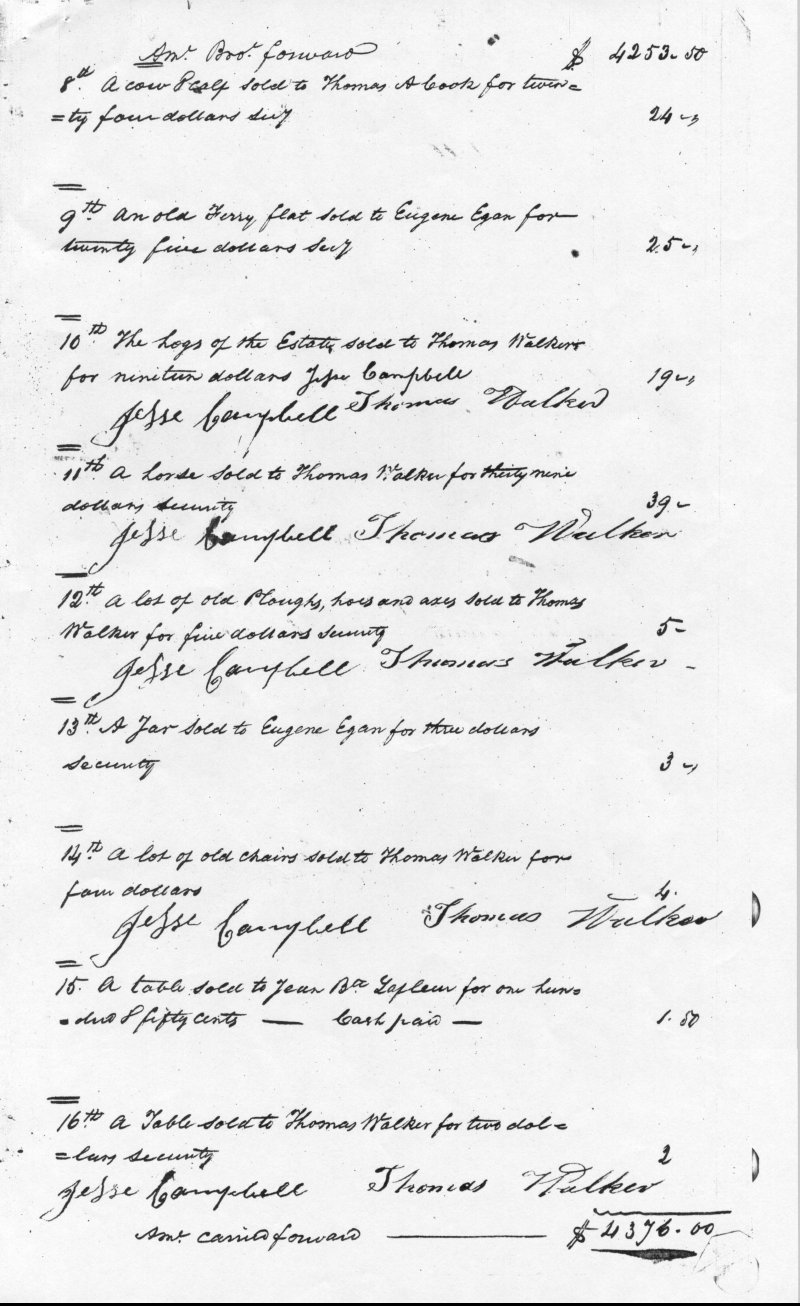 Amt. Brot. forward $ 4253.50
8th. A cow & calf sold to Thomas A Cook for twen=
=ty four dollars secy 24-,,
9th. An old Ferry flat sold to Eugene Egan for
twenty five dollars secy 25-,,
10th. The hogs of the Estate sold to Thomas Walker
for nineteen dollars Jesse Campbell 19-,,
Jesse Campbell Thomas Walker
11th. A horse sold to Thomas Walker for thirty nine
dollars security 39-
Jesse Campbell Thomas Walker
12th. A lot of old Ploughs, hoes and axes sold to Thomas
Walker for five dollars security 5-
Jesse Campbell Thomas Walker -
13th. A Jar sold to Eugene Egan for three dollars
security 3-,,
14th. A lot of old chairs sold to Thomas Walker for
four dollars 4.
Jesse Campbell Thomas Walker
15. A table sold to Jean Bte Lafleur for one hun=
=dred & fifty cents — Cash paid — 1.50
16th A Table sold to Thomas Walker for two dol=
=lars security 2
Jesse Campbell Thomas Walker
Amt. carried forward — $ 4376.00